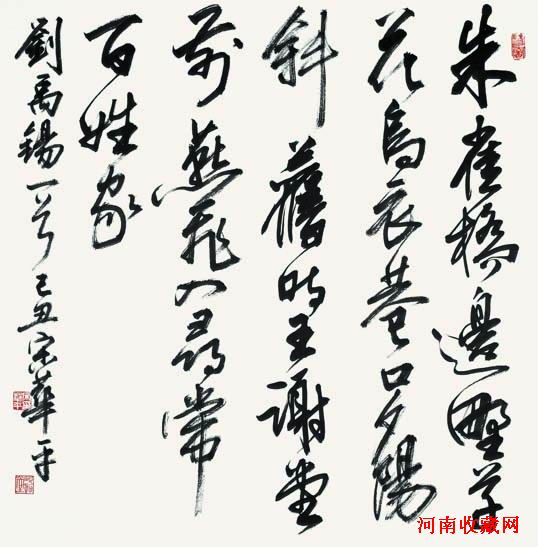 朱雀橋邊野草
花烏衣巷口夕陽
斜舊時王謝堂
前燕飛入尋常
百姓家
劉禹錫一首己丑宋華平
河南收藏网